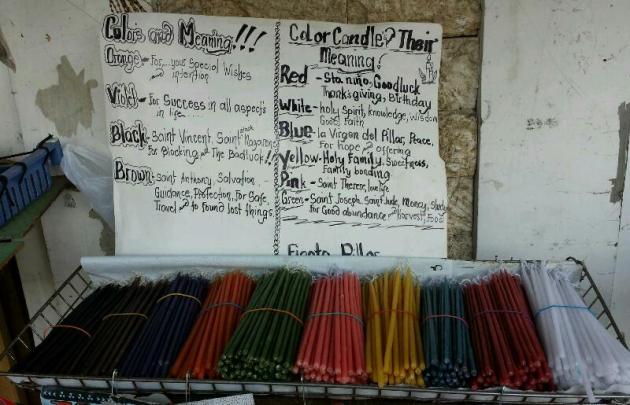 Colors and Meaning!!!
Orange - For,... your Special Wishes
and intention.
Violet - For Success in all aspects
in life......
Black - Saint Vincent, Saint Nazareno
For Blocking The Badluck!!
Brown - Saint Anthony, Salvation,
Guidance, Protection, for Safe
Travel and to found lost things.
Color Candle? Their
Meaning!
Red - Sta. niño, Goodluck
Thanksgiving, Birthday
White - holy Spirit, knowledge, Wisdom
Good Faith
Blue - la Virgen del Pillar, Peace,
For hope offering
Yellow - Holy Family, Sweetness,
Family bonding
Pink - Saint Therese, lovelife
Green - Saint Joseph, Saint Jude, Money, Study
for Good abundance Harvest, Food
Fiesta Pillar